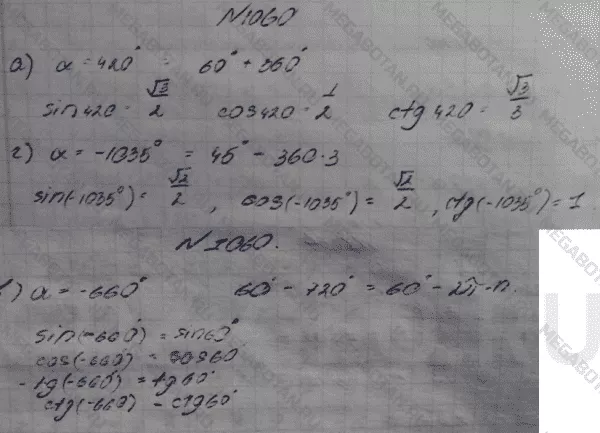 N1060
а) α = 420° = 60° + 360°
sin 420 = √3/2 cos 420 = 1/2 ctg 420 = √3/3
г) α = -1035° = 45° - 360·3
sin(-1035°) = √2/2, cos(-1035°) = √2/2, ctg(-1035°) = 1
N1060.
) α = -660° 60° - 720° = 60° - 2π·n.
sin(-660°) = sin60°
cos(-660) = cos60
tg(-660) = tg60°
ctg(-660) - ctg60°
MEGABOTAN.RU